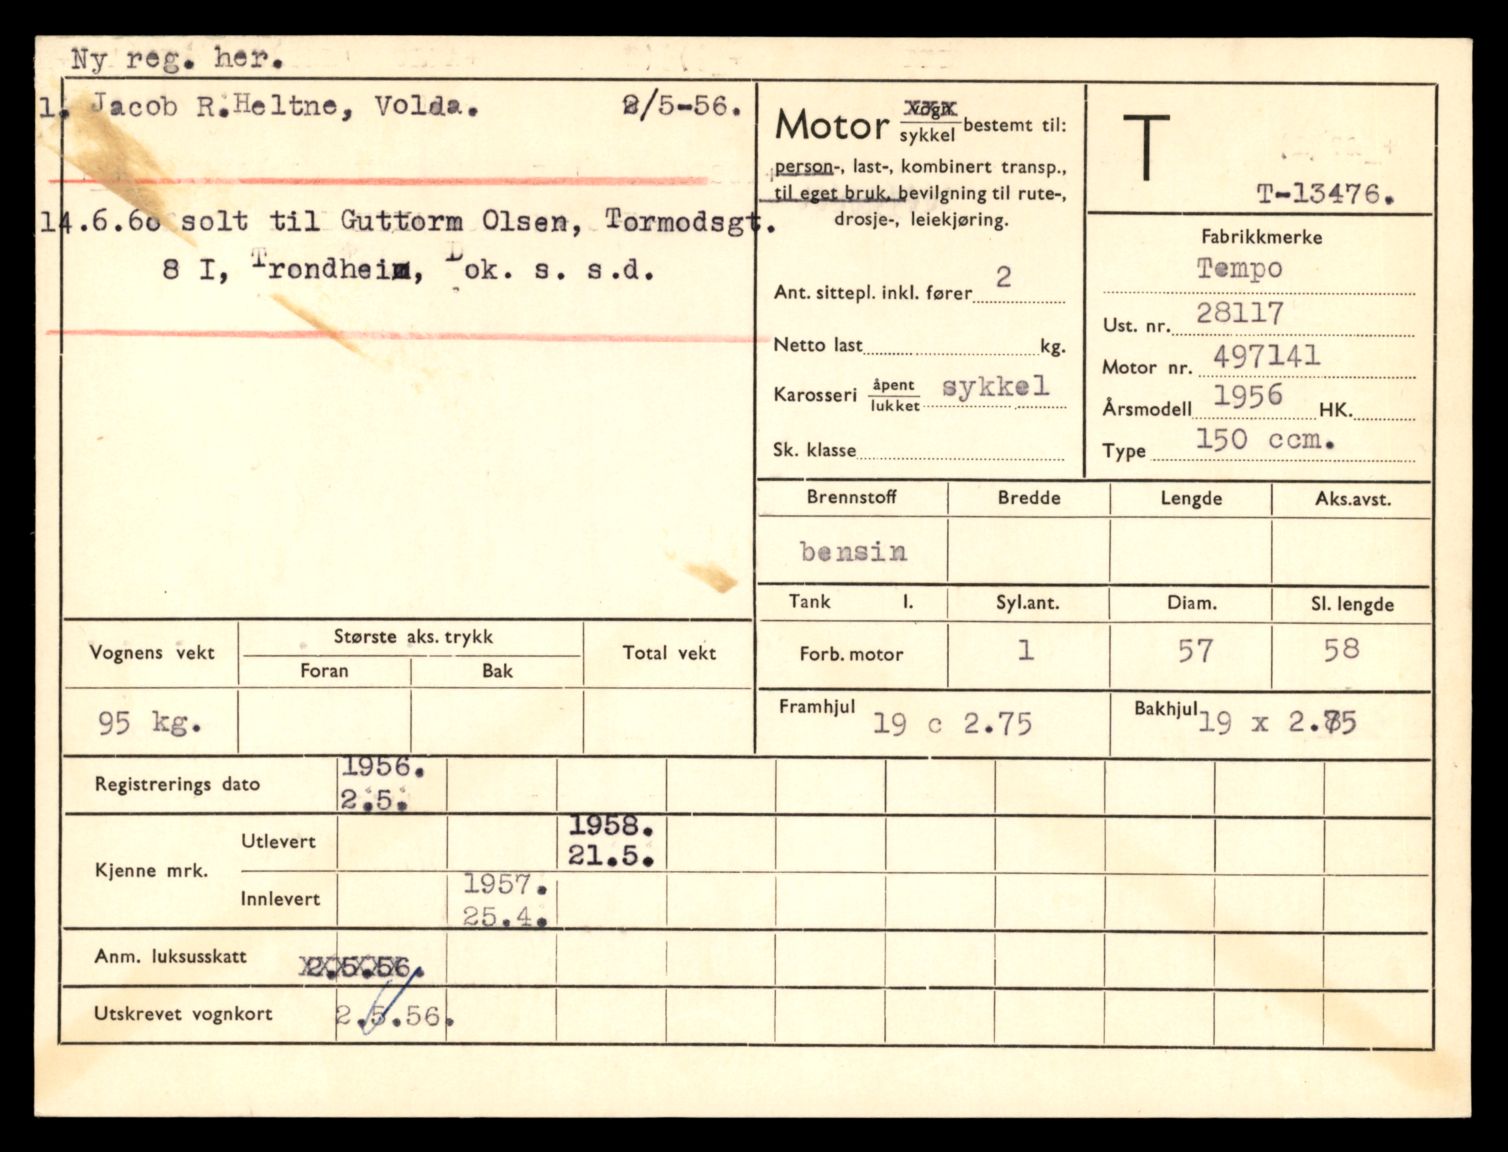 Ny reg. her.
1. Jacob R.Heltne, Volda. 2/5-56.
14.6.60 solt til Guttorm Olsen, Tormodsgt.
8 I, Trondheim, Dok. s. s.d.
Motor vogn/sykkel bestemt til:
person-, last-, kombinert transp.,
til eget bruk, bevilgning til rute-,
drosje-, leiekjøring.
Ant. sittepl. inkl. fører 2
Netto last kg.
Karosseri åpent/lukket sykkel
Sk. klasse
T
T-13476.
Fabrikkmerke
Tempo
Ust. nr. 28117
Motor nr. 497141
Årsmodell 1956 HK.
Type 150 ccm.
Brennstoff Bredde Lengde Aks.avst.
bensin
Tank l. Syl.ant. Diam. Sl. lengde
Forb. motor 1 57 58
Framhjul 19 c 2.75 Bakhjul 19 x 2.75
Vognens vekt Største aks. trykk Total vekt
Foran Bak
95 kg.
Registrerings dato 1956.
2.5.
Kjenne mrk. Utlevert 1958.
21.5.
Innlevert 1957.
25.4.
Anm. luksusskatt 2.5.56.
Utskrevet vognkort 2.5.56.